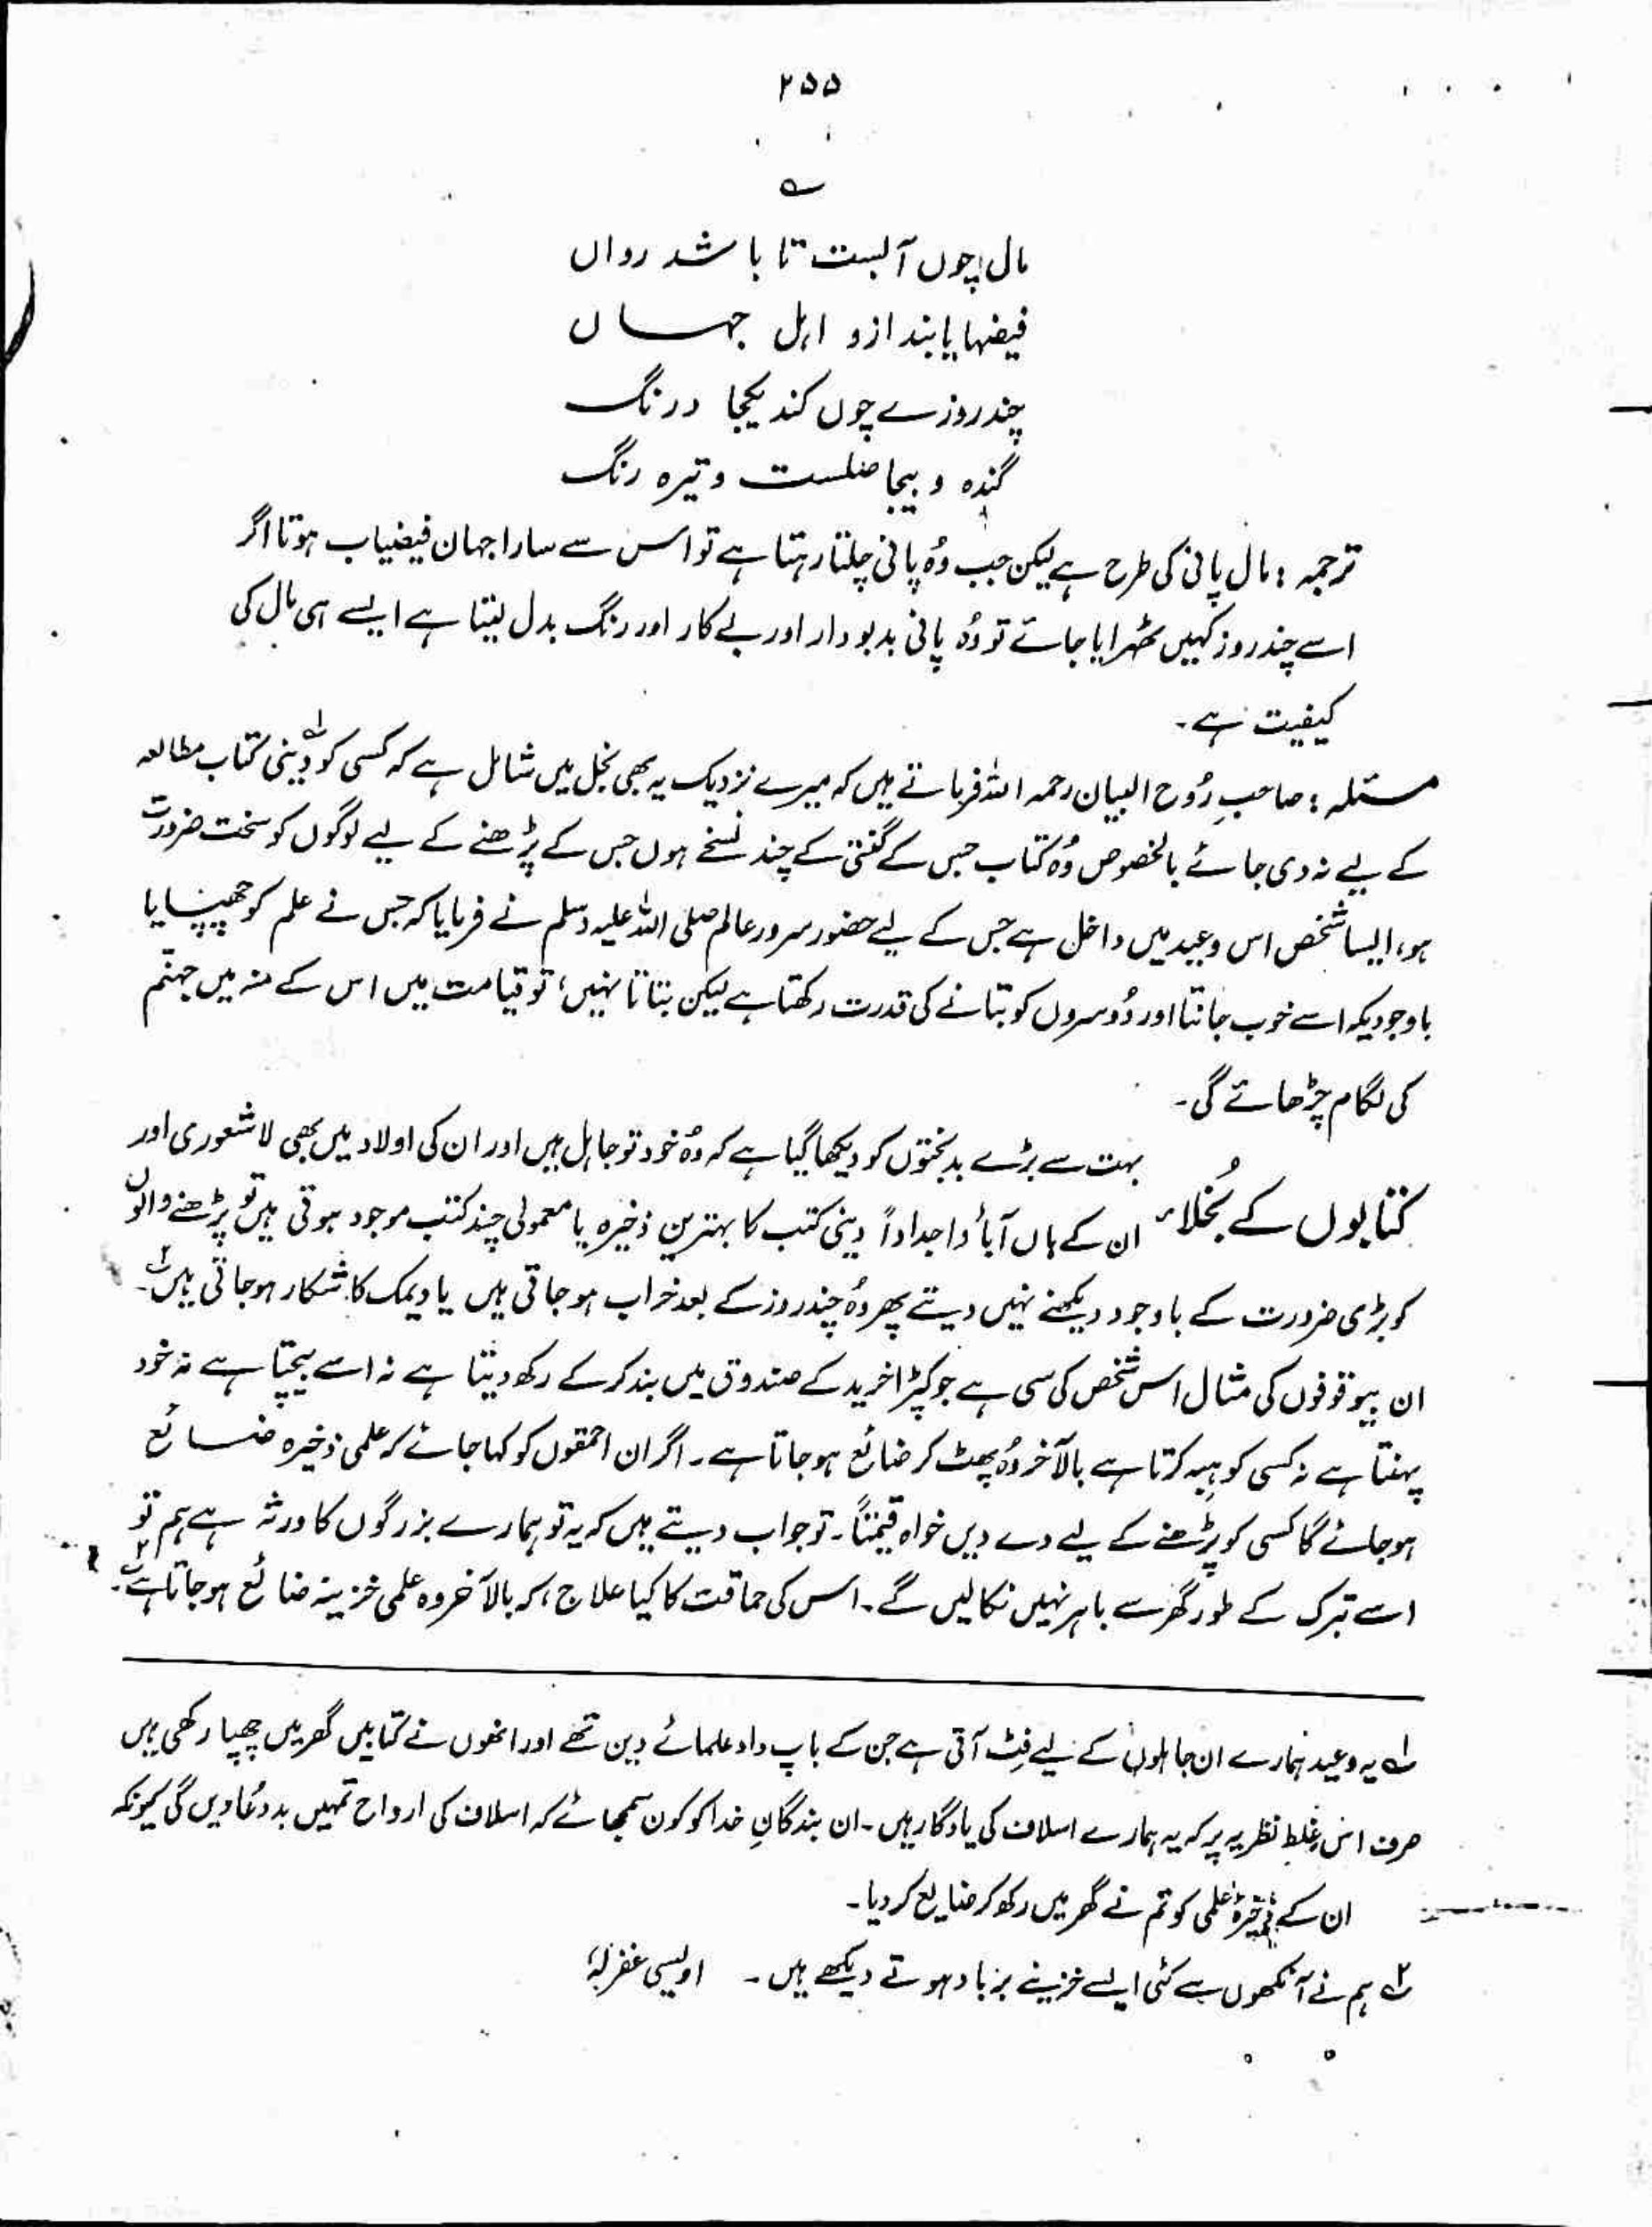 ۲۵۵
؎
مال چوں آبست تا باشد رواں
فیضہا یابند ازو اہل جہاں
چند روزے چوں کند یکجا درنگ
گندہ و بیجا صلست و تیرہ رنگ
ترجمہ : مال پانی کی طرح ہے لیکن جب وُہ پانی چلتا رہتا ہے تو اس سے سارا جہان فیضیاب ہوتا اگر
اسے چند روز کہیں ٹھہرایا جائے تو وُہ پانی بدبودار اور بے کار اور رنگ بدل لیتا ہے ایسے ہی مال کی
کیفیت ہے۔
مسئلہ : صاحبِ رُوح البیان رحمہ اللہ فرماتے ہیں کہ میرے نزدیک یہ بھی بخل میں شامل ہے کہ کسی کو دینی کتاب مطالعہ
کے لیے نہ دی جائے بالخصوص وُہ کتاب جس کے گنتی کے چند نسخے ہوں جس کے پڑھنے کے لیے لوگوں کو سخت ضرورت
ہو، ایسا شخص اس وعید میں داخل ہے جس کے لیے حضور سرور عالم صلی اللہ علیہ وسلم نے فرمایا کہ جس نے علم کو چھپایا
باوجودیکہ اسے خوب جانتا اور دُوسروں کو بتانے کی قدرت رکھتا ہے لیکن بتاتا نہیں، تو قیامت میں اس کے منہ میں جہنّم
کی لگام چڑھائے گی۔
بہت سے بڑے بدبختوں کو دیکھا گیا ہے کہ وُہ خود تو جاہل ہیں اور ان کی اولاد میں بھی لاشعوری اور
کتابوں کے بُخلاء ان کے ہاں آباً و اجداداً دینی کتب کا بہترین ذخیرہ یا معمولی چند کتب موجود ہوتی ہیں تو پڑھنے والوں
کو بڑی ضرورت کے باوجود دیکھنے نہیں دیتے پھر وُہ چند روز کے بعد خراب ہو جاتی ہیں یا دیمک کا شکار ہو جاتی ہیں۲؎۔
ان بیوقوفوں کی مثال اس شخص کی سی ہے جو کپڑا خرید کے صندوق میں بند کر کے رکھ دیتا ہے نہ اسے بیچتا ہے نہ خود
پہنتا ہے نہ کسی کو ہبہ کرتا ہے بالآخر وُہ پھٹ کر ضائع ہو جاتا ہے۔ اگر ان احمقوں کو کہا جائے کہ علمی ذخیرہ ضائع
ہو جائے گا کسی کو پڑھنے کے لیے دے دیں خواہ قیمتاً۔ تو جواب دیتے ہیں کہ یہ تو ہمارے بزرگوں کا ورثہ ہے ہم تو
اسے تبرک کے طور گھر سے باہر نہیں نکالیں گے۔ اس کی حماقت کا کیا علاج، کہ بالآخر وہ علمی خزینہ ضائع ہو جاتا ہے۲؎۔
۱؎ یہ وعید ہمارے ان جاہلوں کے لیے فِٹ آتی ہے جن کے باپ داد علمائے دین تھے اور انھوں نے کتابیں گھر میں چھپا رکھی ہیں
صرف اس غلط نظریہ پر کہ یہ ہمارے اسلاف کی یادگار ہیں۔ ان بندگانِ خدا کو کون سمجھائے کہ اسلاف کی ارواح تمہیں بددُعا دیں گی کیونکہ
ان کے ذخیرۂ علمی کو تم نے گھر میں رکھ کر ضایع کر دیا۔
۲؎ ہم نے آنکھوں سے کئی ایسے خزینے برباد ہوتے دیکھے ہیں۔ اویسی غفرلہٗ